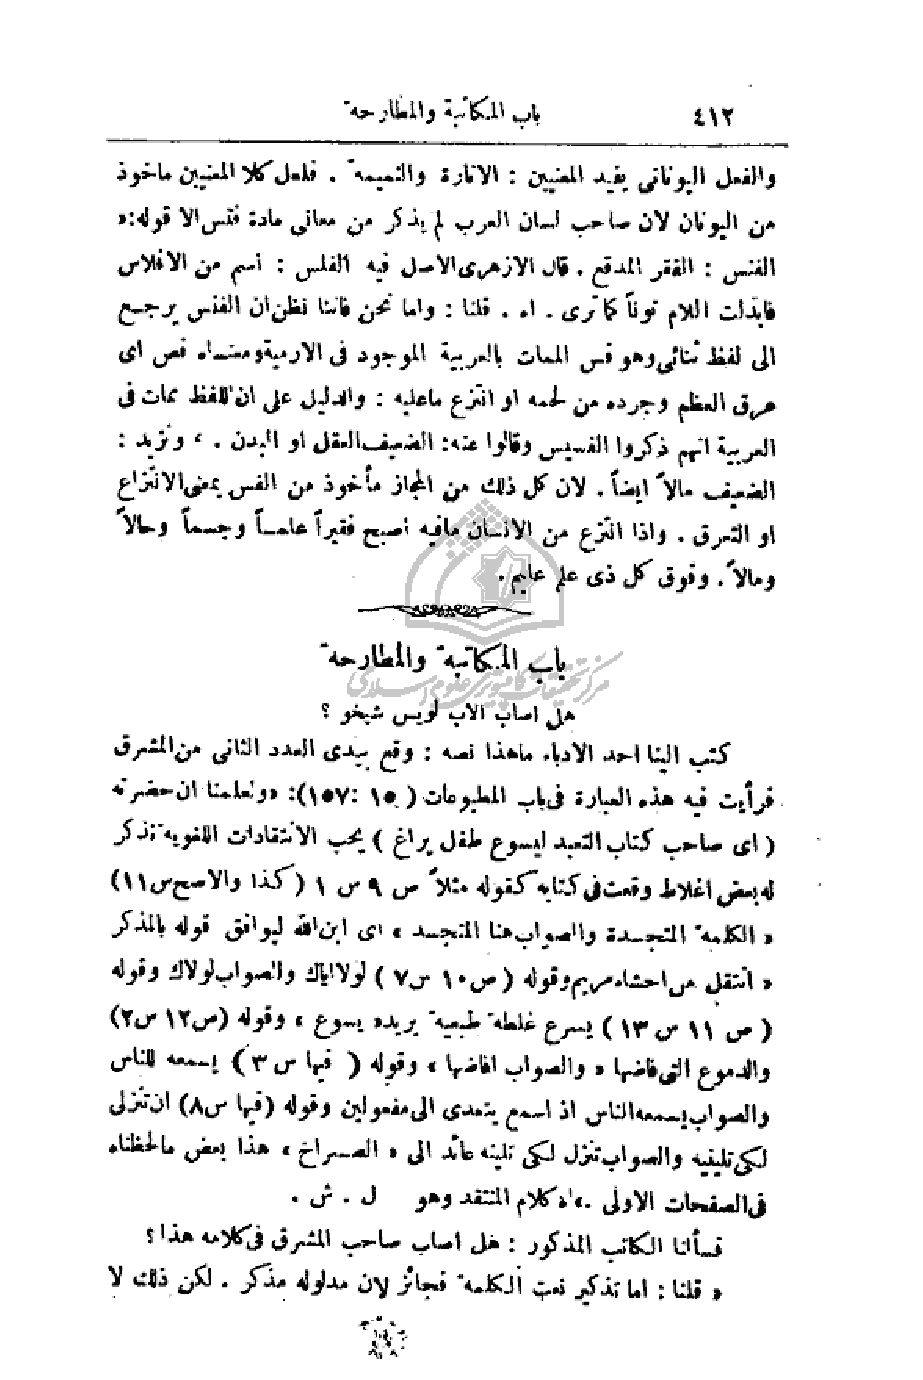 ٤١٢ باب المكاتبة والمطارحة
والفعل اليوناني يفيد المعنيين : الانارة والنميمة . فلعل كلا المعنيين ماخوذ
من اليونان لان صاحب لسان العرب لم يذكر من معاني مادة فنس الا قوله: «
الفنس : الفقر المدقع . قال الازهرى الاصل فيه الفلس : اسم من الافلاس
فابدلت اللام نوناً كما ترى . اه . قلنا : واما نحن فاننا نظن ان الفنس يرجع
الى لفظ ثنائي وهو فس الممات بالعربية الموجود فى الارمية ومعناه فص اى
عرق العظم وجرده من لحمه او انتزع ماعليه : والدليل على ان اللفظ ممات فى
العربية انهم ذكروا الفسيس وقالوا عنه: الضعيف العقل او البدن . ، ونزيد :
الضعيف مالاً ايضاً . لان كل ذلك من المجاز مأخوذ من الفس بمعنى الانتزاع
او التعرق . واذا انتزع من الانسان مافيه اصبح فقيراً علمـاً وجسماً وحالاً
ومالاً . وفوق كل ذى علم عليم .
باب المكاتبة والمطارحة
مركز تحقيقات كامپيوترى علوم اسلامى
هل اصاب الاب لويس شيخو ؟
كتب الينا احد الادباء ماهذا نصه : وقع بيدى العدد الثانى من المشرق
فرأيت فيه هذه العبارة فى باب المطبوعات ( ١٥ :١٥٧): «وتعلمنا ان حضرته
( اى صاحب كتاب التعبد ليسوع طفل براغ ) يحب الانتقادات اللغوية نذكر
له بعض اغلاط وقعت فى كتابه كقوله مثلاً ص ٩ س ١ ( كذا والاصح س ١١)
« الكلمة المتجسدة والصواب هنا المتجسد » اى ابن الله ليوافق قوله بالمذكر
« انتقل من احشاء مريم وقوله ( ص ١٠ س ٧ ) لولا اياك والصواب لولاك وقوله
( ص ١١ س ١٣ ) يسرع غلطة طبعية يريد« يسوع » وقوله (ص ١٢ س ٢)
والدموع التى فاضها « والصواب افاضها » وقوله ( فيها س ٣ ) يسمعه للناس
والصواب يسمعه الناس اذ اسمع يتعدى الى مفعولين وقوله (فيها س ٨) ان تنزلى
لكى تليفيه والصواب تنزل لكى تلينه عائد الى « الصراخ » هذا بعض مالحظناه
فى الصفحات الاولى .» اه كلام المنتقد وهو ل . ش .
فسألنا الكاتب المذكور : هل اصاب صاحب المشرق فى كلامه هذا ؟
« قلنا : اما تذكير نعت الكلمة فجائز لان مدلوله مذكر . لكن ذلك لا